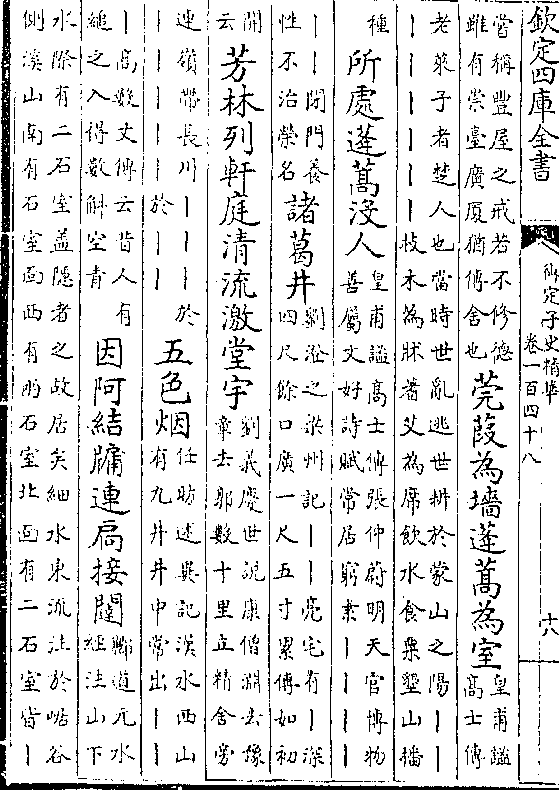 欽定四庫全書
御定子史精華
卷一百四十八
十八
當稱豐屋之戒若不修德
雖有崇臺廣厦猶傳舍也
莞葭為墻蓬蒿為室
皇甫謐
高士傳
老萊子者楚人也當時世亂逃世耕於蒙山之陽丨丨
丨丨丨丨丨丨枝木為牀蓍艾為席飲水食粟墾山播
種
所處蓬蒿沒人
皇甫謐高士傳張仲蔚明天官博物
善屬文好詩賦常居窮素丨丨丨丨
丨丨閉門養
性不治榮名
諸葛井
劉澄之梁州記丨丨亮宅有丨深
四尺餘口廣一尺五寸累傳如初
開
云
芳林列軒庭清流激堂宇
劉義慶世說康僧淵去豫
章去郭數十里立精舍旁
連嶺帶長川丨丨丨丨於
丨丨丨丨於丨丨丨
五色烟
任昉述異記漢水西山
有九井井中常出丨丨
丨高數丈傳云昔人有
縋之入得數斛空青
因阿結牖連扃接闥
酈道元水
經注山下
水際有二石室蓋隱者之故居矣細水東流注於崌谷
側溪山南有石室面西有兩石室北面有二石室皆丨